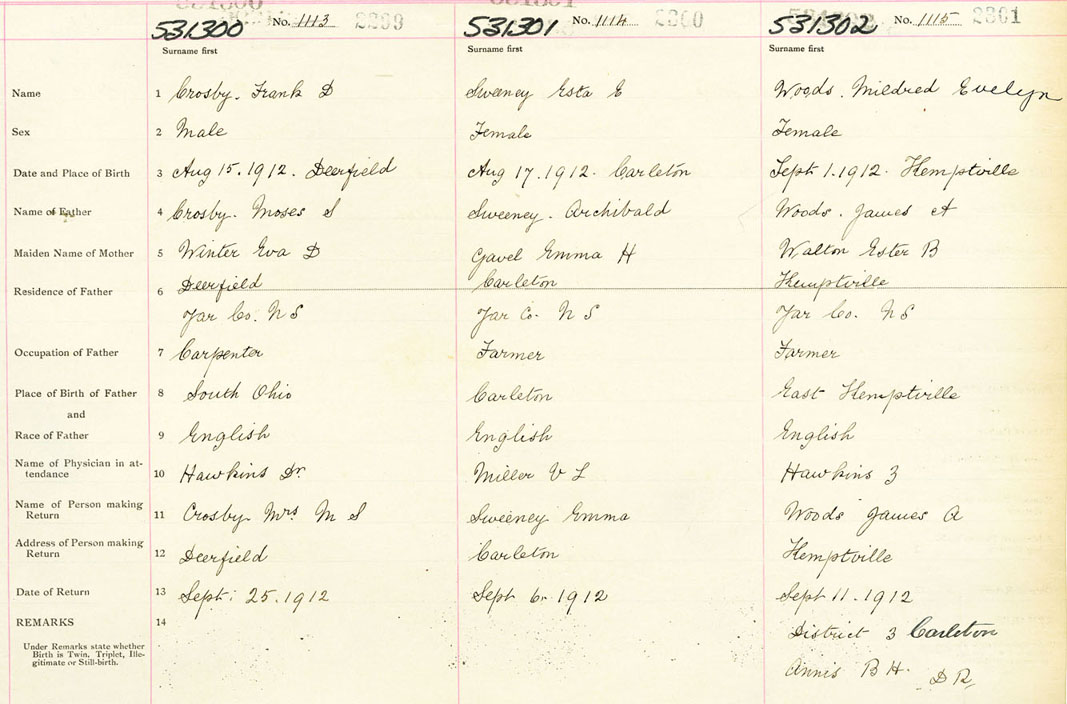 531300 No. 1113 2299 531301 No. 1114 2300 531302 No. 1115 2301
Surname first Surname first Surname first
Name 1 Crosby. Frank D Sweeney Esta E Woods. Mildred Evelyn
Sex 2 Male Female Female
Date and Place of Birth 3 Aug 15.1912. Deerfield Aug 17.1912. Carleton Sept 1.1912. Kemptville
Name of Father 4 Crosby. Moses S Sweeney. Archibald Woods. James A
Maiden Name of Mother 5 Winter Eva D Gavel Emma H Walton Ester B
Residence of Father 6 Deerfield Carleton Kemptville
Yar Co. N S Yar Co. N S Yar Co. N S
Occupation of Father 7 Carpenter Farmer Farmer
Place of Birth of Father 8 South Ohio Carleton East Kemptville
and
Race of Father 9 English English English
Name of Physician in at- 10 Hawkins Dr. Miller V L Hawkins
tendance
Name of Person making 11 Crosby Mrs M S Sweeney Emma Woods James A
Return
Address of Person making 12 Deerfield Carleton Kemptville
Return
Date of Return 13 Sept. 25.1912 Sept 6. 1912 Sept 11.1912
REMARKS 14
District 3 Carleton
Under Remarks state whether
Birth is Twin, Triplet, Ille-
gitimate or Still-birth.
Annis B H. D R